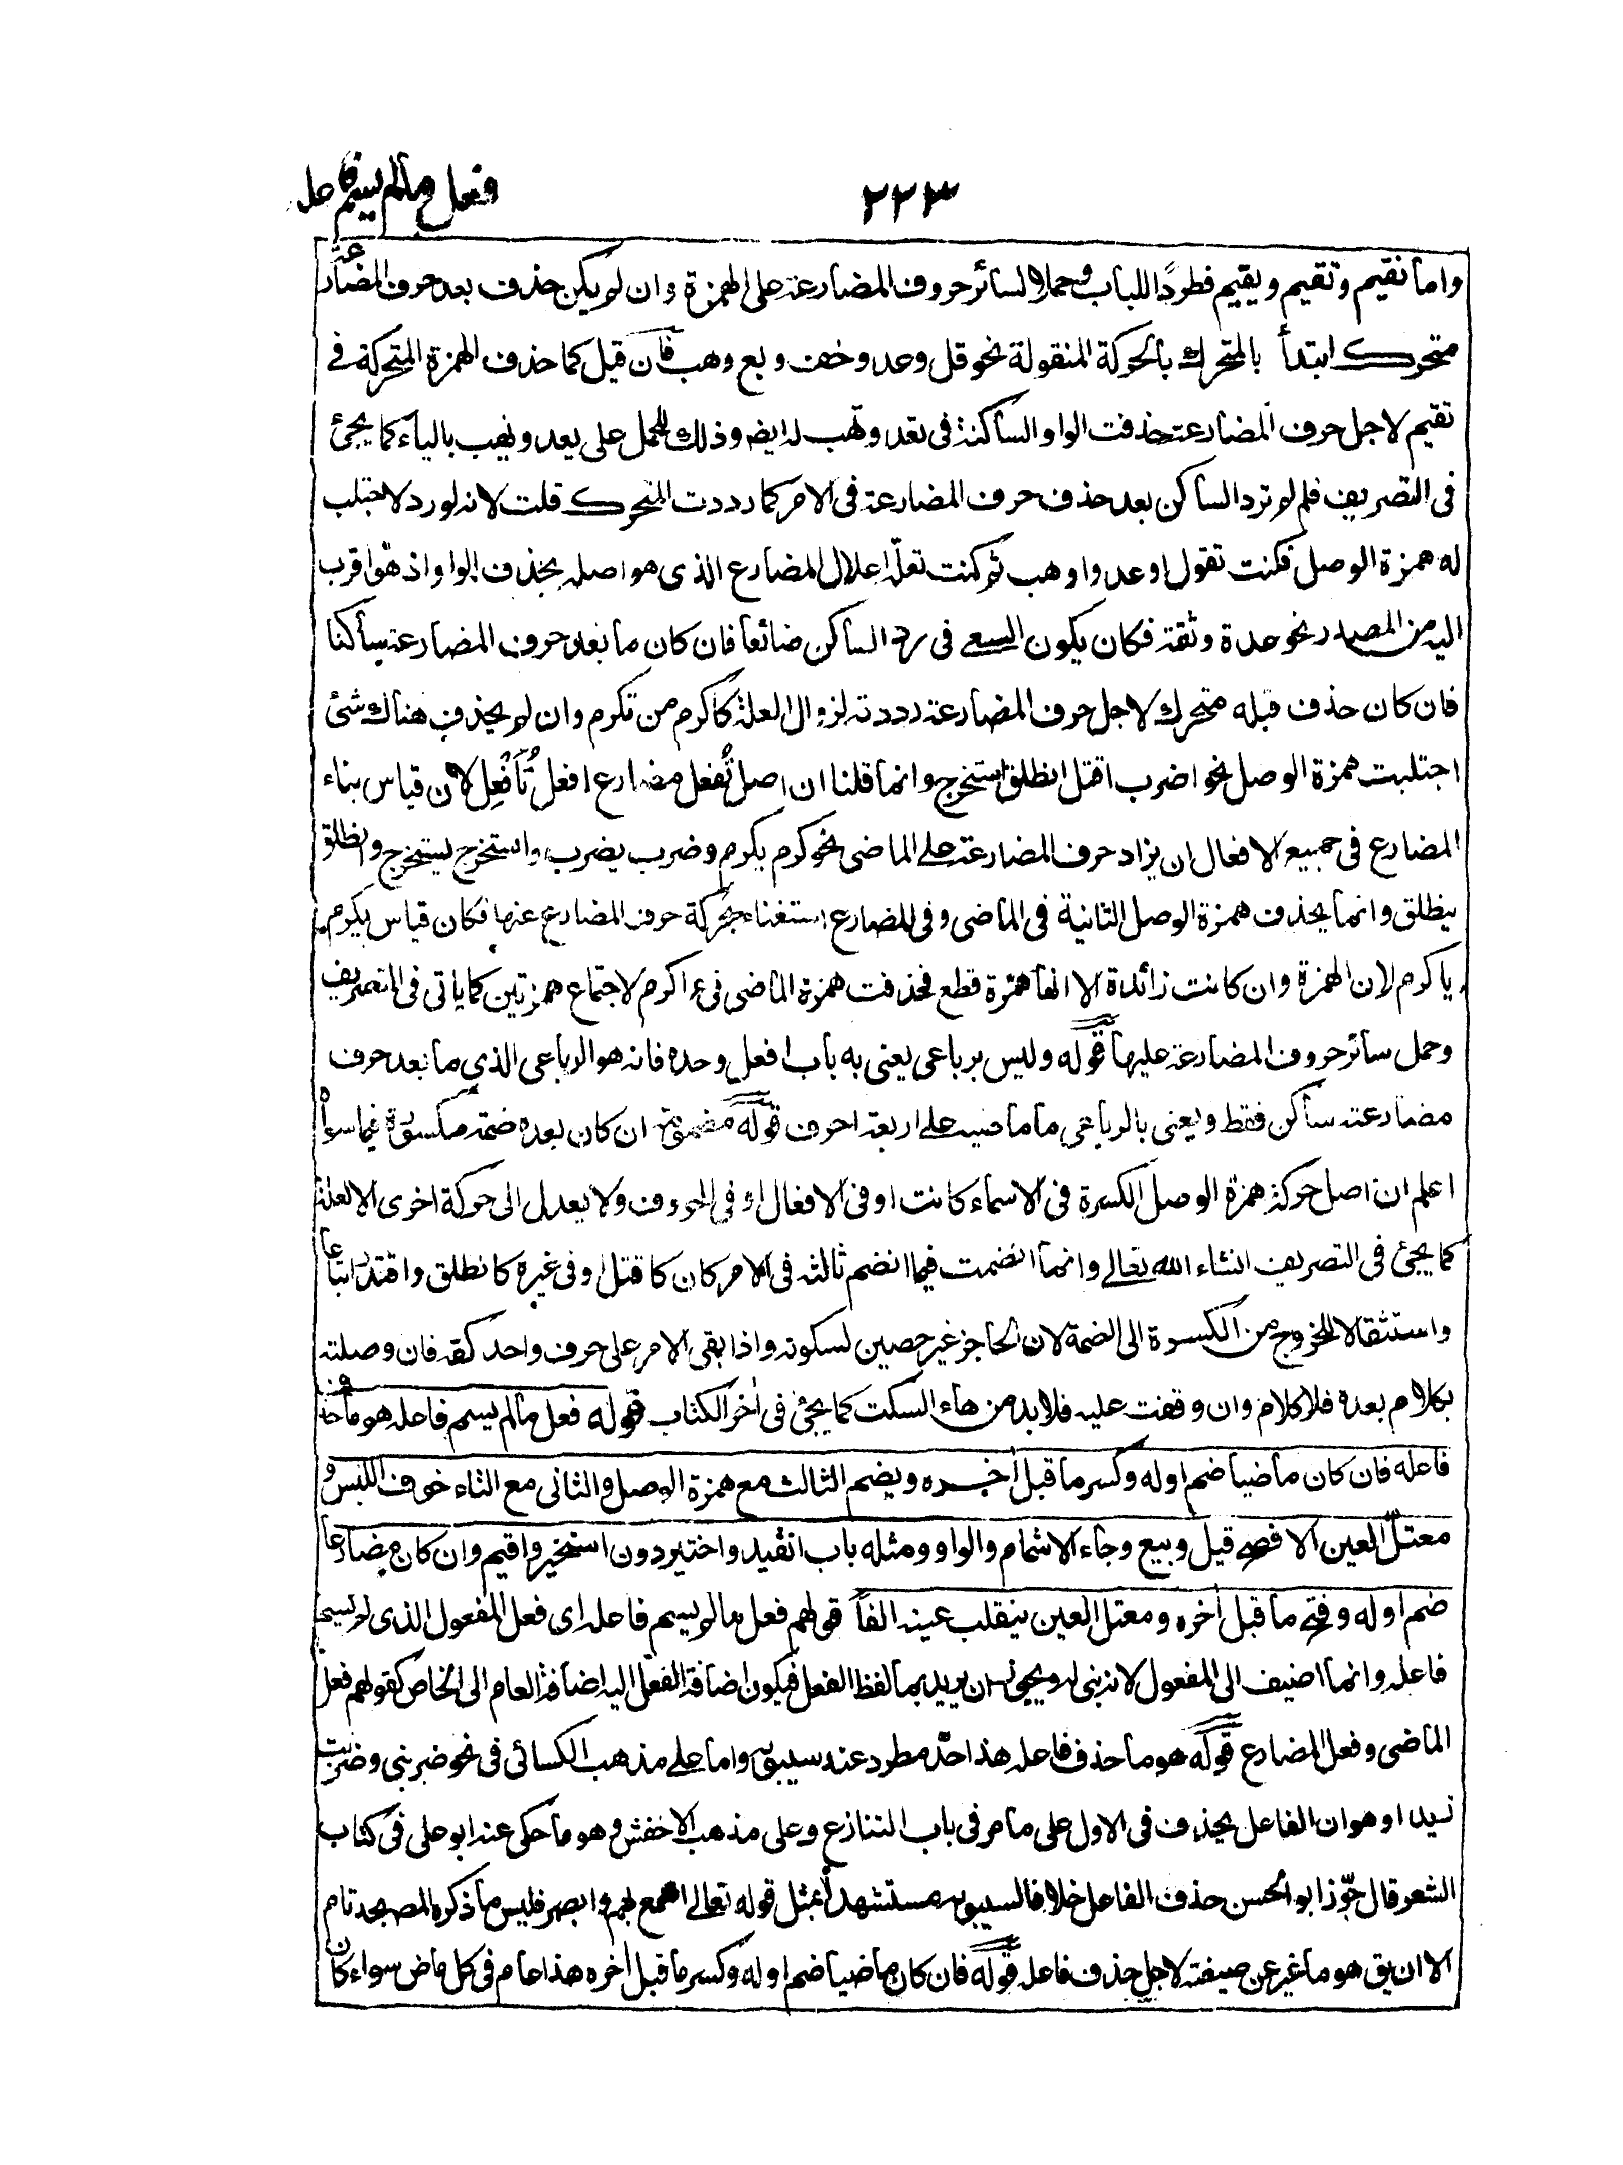 ٢٢٣
فعل ما لم يسم فاعله
واما نقيم وتقيم ويقيم فطردًا للباب وحملا لسائر حروف المضارعة على الهمزة وان لم يكن حذف بعد حرف المضارعة
متحرك ابتدأ بالمتحرك بالحركة المنقولة نحو قل وعد وخف وبع وهب فان قيل كما حذف الهمزة المتحركة في
تقيم لاجل حرف المضارعة حذفت الواو الساكنة فى تعد وتهب له ايضه وذلك للحمل على يعد ويهب بالياء كما يجئ
فى التصريف فلم لم ترد الساكن بعد حذف حرف المضارعة فى الامر كما رددت المتحرك قلت لانه لو رد لاجتلب
له همزة الوصل فكنت تقول اوعد واوهب ثم كنت تعلّه اعلال المضارع الذى هو اصله بحذف الواو اذ هو اقرب
اليه من المصادر نحو عدة وثقة فكان يكون السعي فى رد الساكن ضائعا فان كان ما بعد حروف المضارعة ساكنا
فان كان حذف قبله متحرك لاجل حرف المضارعة رددته لزوال العلة كاكرم من تكرم وان لم يحذف هناك شئ
اجتلبت همزة الوصل نحو اضرب اقتل انطلق استخرج وانما قلنا ان اصل تُفعل مضارع افعل تُأَفْعِل لان قياس بناء
المضارع فى جميع الافعال ان يزاد حرف المضارعة على الماضى نحو كرم يكرم وضرب يضرب واستخرج يستخرج وانطلق
ينطلق وانما يحذف همزة الوصل الثانية فى الماضى وفى المضارع استغناء بحركة حرف المضارع عنها فكان قياس يكرم
يأكرم لان الهمزة وان كانت زائدة الا انها همزة قطع فحذفت همزة الماضى فى ءاكرم لاجتماع همزتين كما يأتى فى التصريف
وحمل سائر حروف المضارعة عليها قوله وليس برباعى يعنى به باب افعل وحده فانه هو الرباعى الذى ما بعد حرف
مضارعته ساكن فقط ويعنى بالرباعى ما ماضيه على اربعة احرف قوله مضمومة ان كان بعده ضمة مكسورة فيما سواه
اعلم ان اصل حركة همزة الوصل الكسرة فى الاسماء كانت او فى الافعال او فى الحروف ولا يعدل الى حركة اخرى الا لعلة
كما يجئ فى التصريف انشاء الله تعالى وانما انضمت فيما انضم ثالثه فى الامر كان كاقتل او فى غيره كانطلق واقتدر اتباعا
واستثقالا للخروج من الكسرة الى الضمة لان الحاجز غير حصين لسكونه واذا بقى الامر على حرف واحد كقه فان وصلته
بكلام بعده فلا كلام وان وقفت عليه فلا بد من هاء السكت كما يجئ فى آخر الكتاب قوله فعل ما لم يسم فاعله هو ما حذف
فاعله فان كان ماضيا ضم اوله وكسر ما قبل آخره ويضم الثالث مع همزة الوصل والثانى مع التاء خوف اللبس و
معتلّ العين الافصح قيل وبيع وجاء الاشمام والواو ومثله باب انقيد واختير دون استخير واقيم وان كان مضارعا
ضم اوله وفتح ما قبل آخره ومعتل العين ينقلب عينه الفا قولهم فعل ما لم يسم فاعله اى فعل المفعول الذى لم يسم
فاعله وانما اضيف الى المفعول لانه بنى له ويجئ ان يريد بما لفظ الفعل فيكون اضافة الفعل اليه اضافة العام الى الخاص كقولهم فعل
الماضى وفعل المضارع قوله هو ما حذف فاعله هذا حدّ مطرد عند سيبويه واما على مذهب الكسائى فى نحو ضربنى وضربت
زيدا وهو ان الفاعل يحذف فى الاول على ما مر فى باب التنازع وعلى مذهب الاخفش وهو ما حكى عنه ابو على فى كتاب
الشعر قال جوّز ابو الحسن حذف الفاعل خلافا لسيبويه مستشهدا بمثل قوله تعالى اسمع بهم وابصر فليس ما ذكره المصـ بحد تام
الا ان يق هو ما غير عن صيغته لاجل حذف فاعله قوله فان كان ماضيا ضم اوله وكسر ما قبل آخره هذا عام فى كل ماض سواء كان